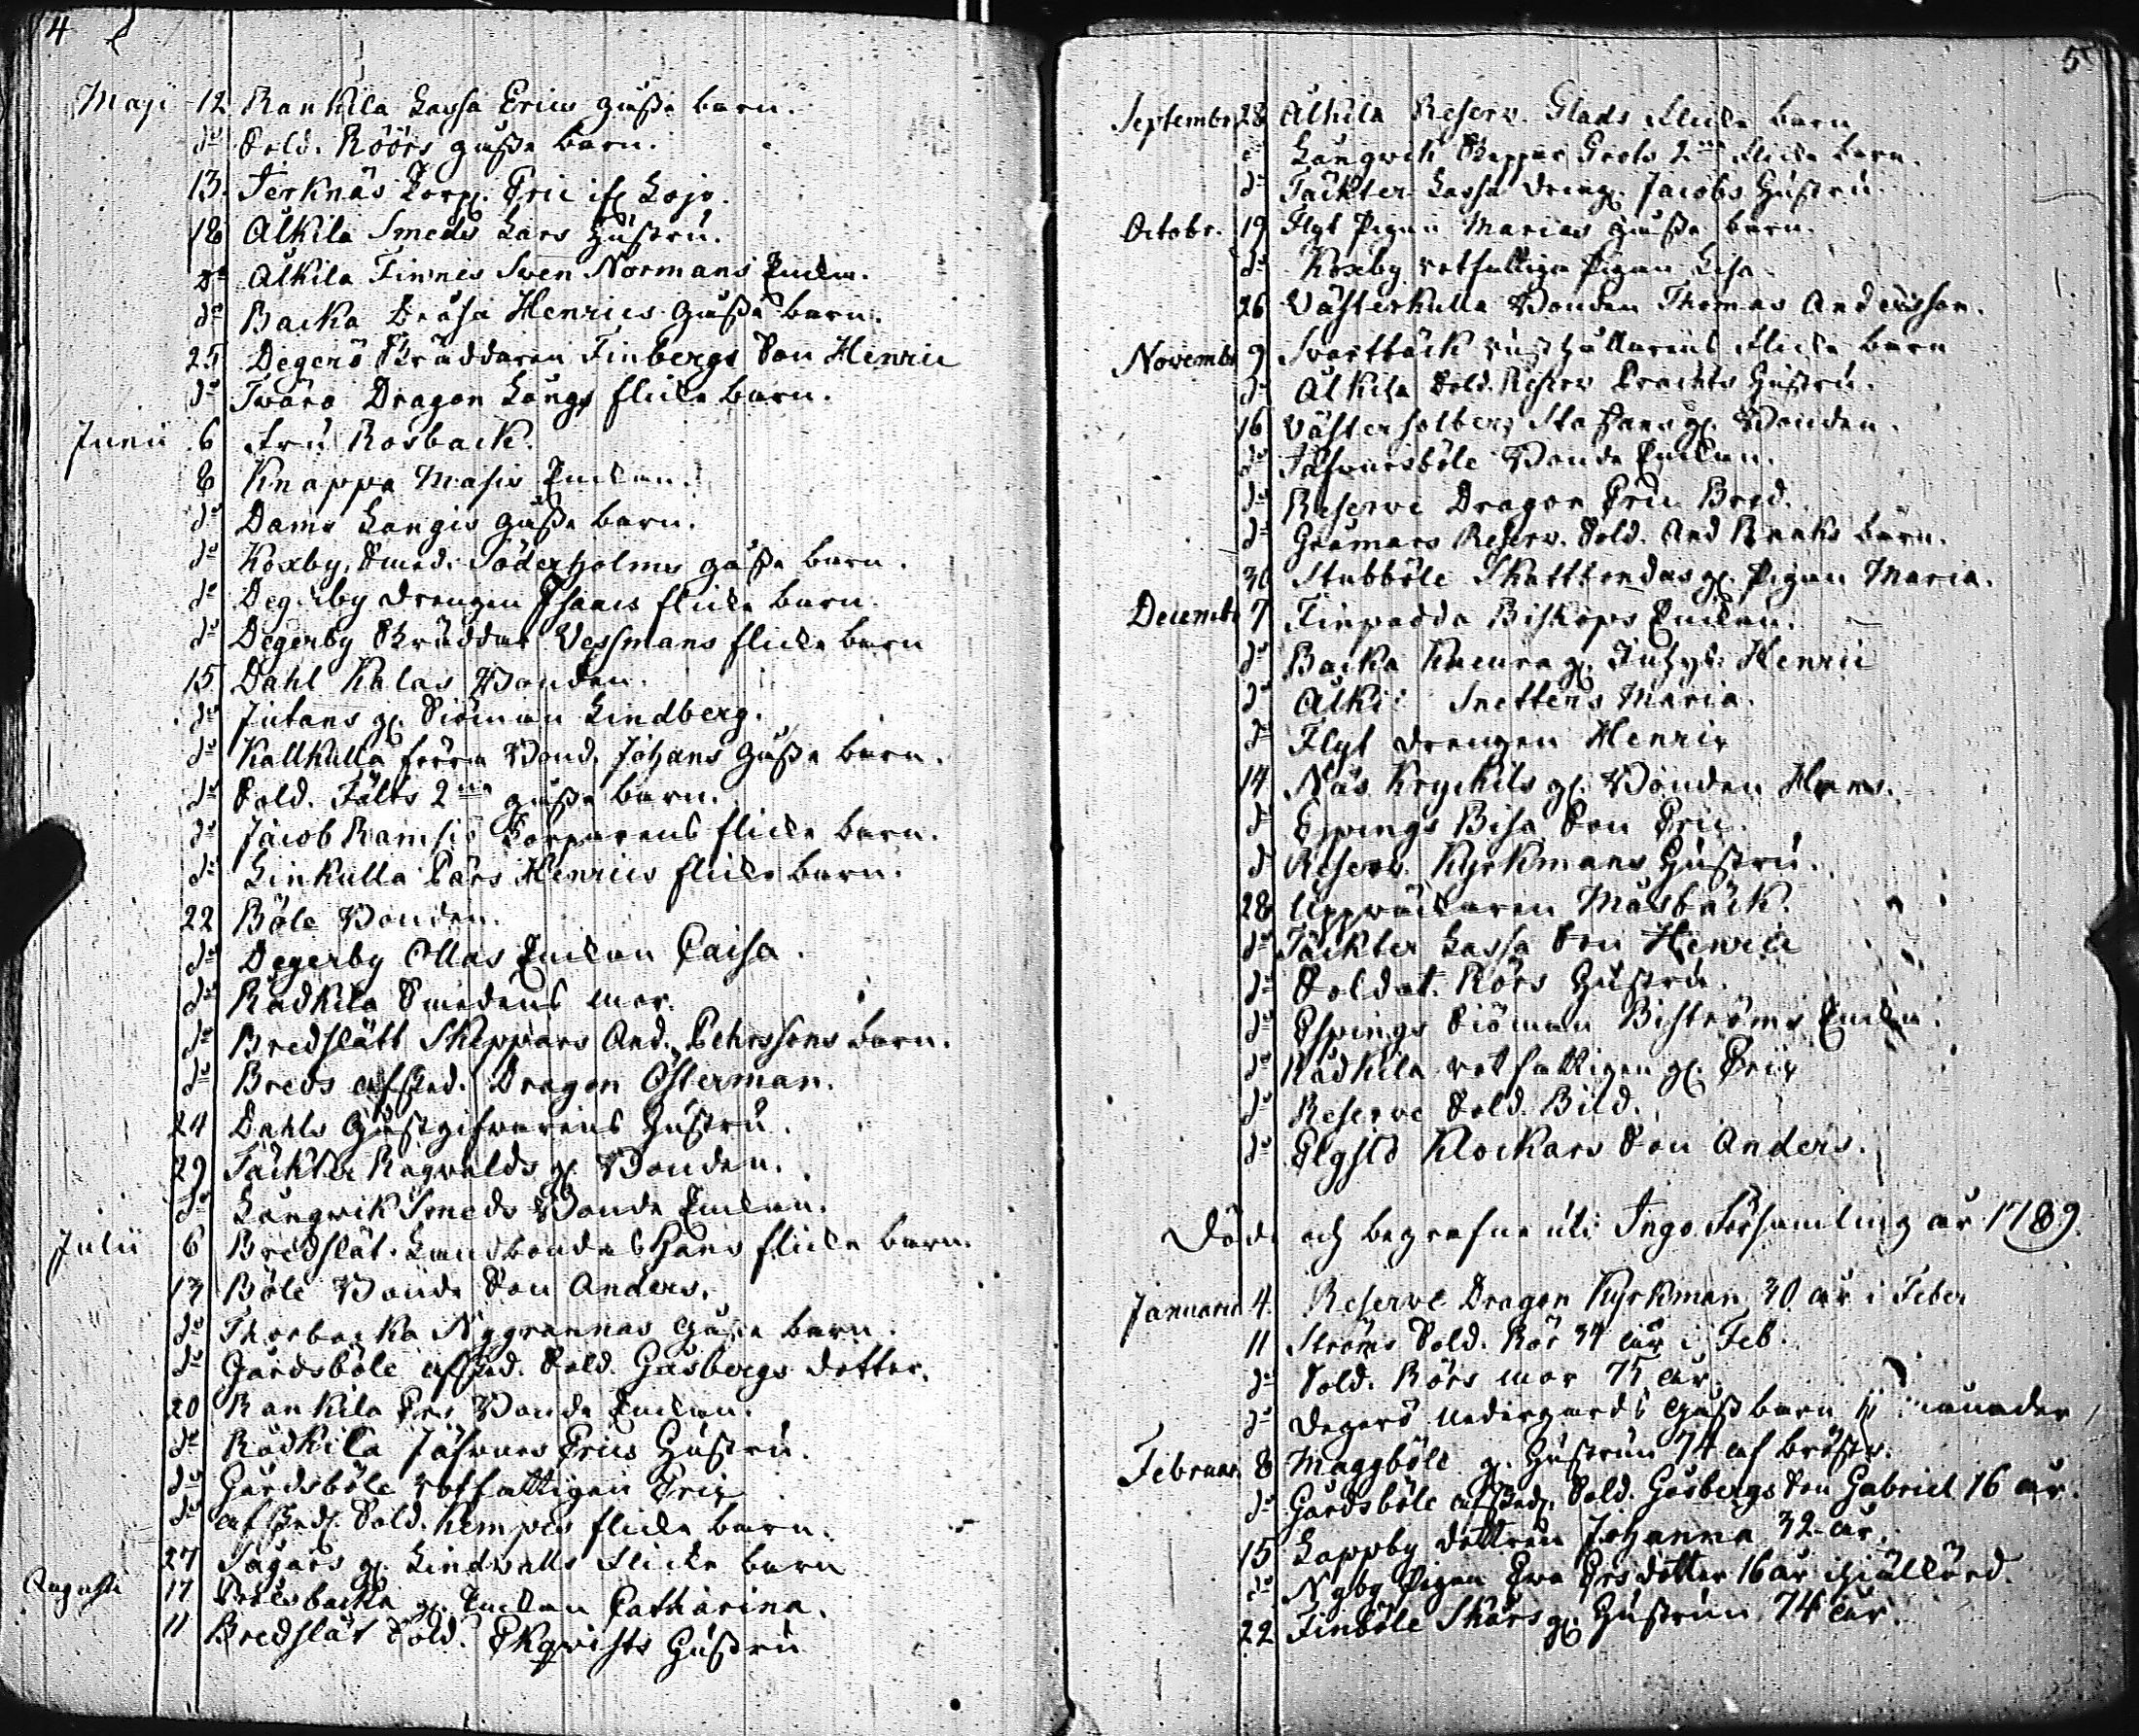 4
Maji 12 Rankila Lassa Erics gåsse barn.
do Sold. Röörs gåsse barn.
13. Terknäs Torp. Eric if Lojo.
18 Alkila Smeds Lars Hustru.
do Alkila Finnis Swen Normans Enkan.
do Backa Henrics gåsse barn.
25 Degerö Skräddaren Finbergs Son Henric
do Twärö Dragon Långs flicke barn.
Junii 6 Fru Rosback.
8 Knappa Masis Enkan.
do Dams Langis gåsse barn.
do Koxby, Smed. Söderholms gåsse barn.
do Degerby drengen Isaacs flicke barn.
do Degerby Skräddar Wessmans flicke barn
15 Dahl Kalas Bonden.
do Jutans gl. Siöman Lindberg.
do Kallkulla förra Bond. Johans gåsse barn.
do Sold. Fälts 2ne gåsse barn.
do Jacob Ramsiö Torparens flicke barn.
do Linkulla Pärs Henrics flicke barn.
22 Böle Bonden.
do Degerby Ollas Enkan Caisa.
do Rådkila Smedens mor.
do Bredslätt Skeppars And. Pehrssons barn.
do Breds afsked. Dragon Österman.
24 Dahls Gästgifwarens Hustru.
29 Täckter Ragwalds gl. Bonden.
do Långwik Smeds Bonde Enkan.
Julii 6 Bredslät. Landbondes Hans flicke barn.
13 Böle Bonde Son Anders.
do Thorbacka Nygrannas gåsse barn.
do Gårdsböle afsked. Sold. Gåsbergs dotter.
20 Rankila Ers Bonde Enkan.
do Rådkila Jäfwars Erics Hustru.
do Gårdsböle rotfattigen Eric
do afsked. Sold. Kempes flicke barn.
27 Sågars gl. Lindwalls flicke barn
Augusti 17 gl. Enkan Catharina.
11 Bredslät Sold. Ekqwists Hustru
5
Septembr. 28 Alkila Reserv. Glads flicke barn
do Långwik Skeppar Grots 2ne flicke barn.
do Täckter Lassa dreng. Jacobs Hustru.
Octobr. 19 Flyt Pigan Marias gåsse barn.
do Koxby rotfattiga Pigan Lisa.
26 Västerkulla Bonden Thomas Andersson.
Novembr 9 Svartbäck rusthållarens flicke barn
do Alkila Sold. Reserv Hustru.
16 Västersolberg Staffans gl. Bonden.
do Jäfwarsböle Bonde Enkan.
do Reserve Dragon Eric Bred.
do Gramars Reserv. Sold. And barn.
30 Stubböle Skattbondas gl. Pigan Maria.
Decembr 7 Finpadda Biskops Enkan.
do Backa gl. Henric
do Alki: Snettens Maria.
do Flyt drengen Henric
14 Näs Kryckils gl. Bonden Hans.
do Espings Bisa Son Eric.
do Reserv. Kyrkmans Hustru.
28 Uppwäckaren Måsbäck.
do Täckter Lassa Son Henric
do Soldat. Rörs Hustru.
do Espings Siöman Biströms Enkan.
do Rådkila rotfattigen gl. Eric
do Reserve Sold. Bild.
do Elgsiö Klockars Son Anders.
Döde och begrafne uti Ingo Församling år 1789.
Januarii 4. Reserve Dragon Kyrkman 30 år i Feber
11 Ströms Sold. Rör 34 år i Feb.
do Sold. Rörs mor 75 år.
do Degerö Nedergårds gåss barn månader
Februar. 8 Maggböle gl. Hustrun 74 af bröstw.
do Gårdsböle afsked. Sold. Gåsbergs Son Gabriel 16 år.
15 Lappby dottren Johanna 32 år.
do Nyby Pigan Ewa Ersdotter 16 år ihiällörd.
22 Finböle Skärs gl. Hustrun 74 år.